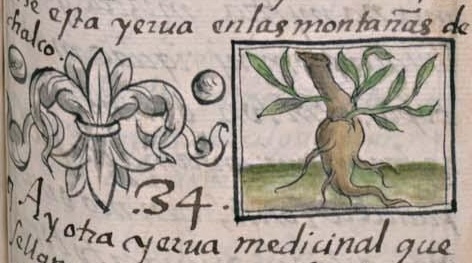 se esta yerua en las montañas de
chalco.
.34.
Ay otra yerua medicinal que
se llam